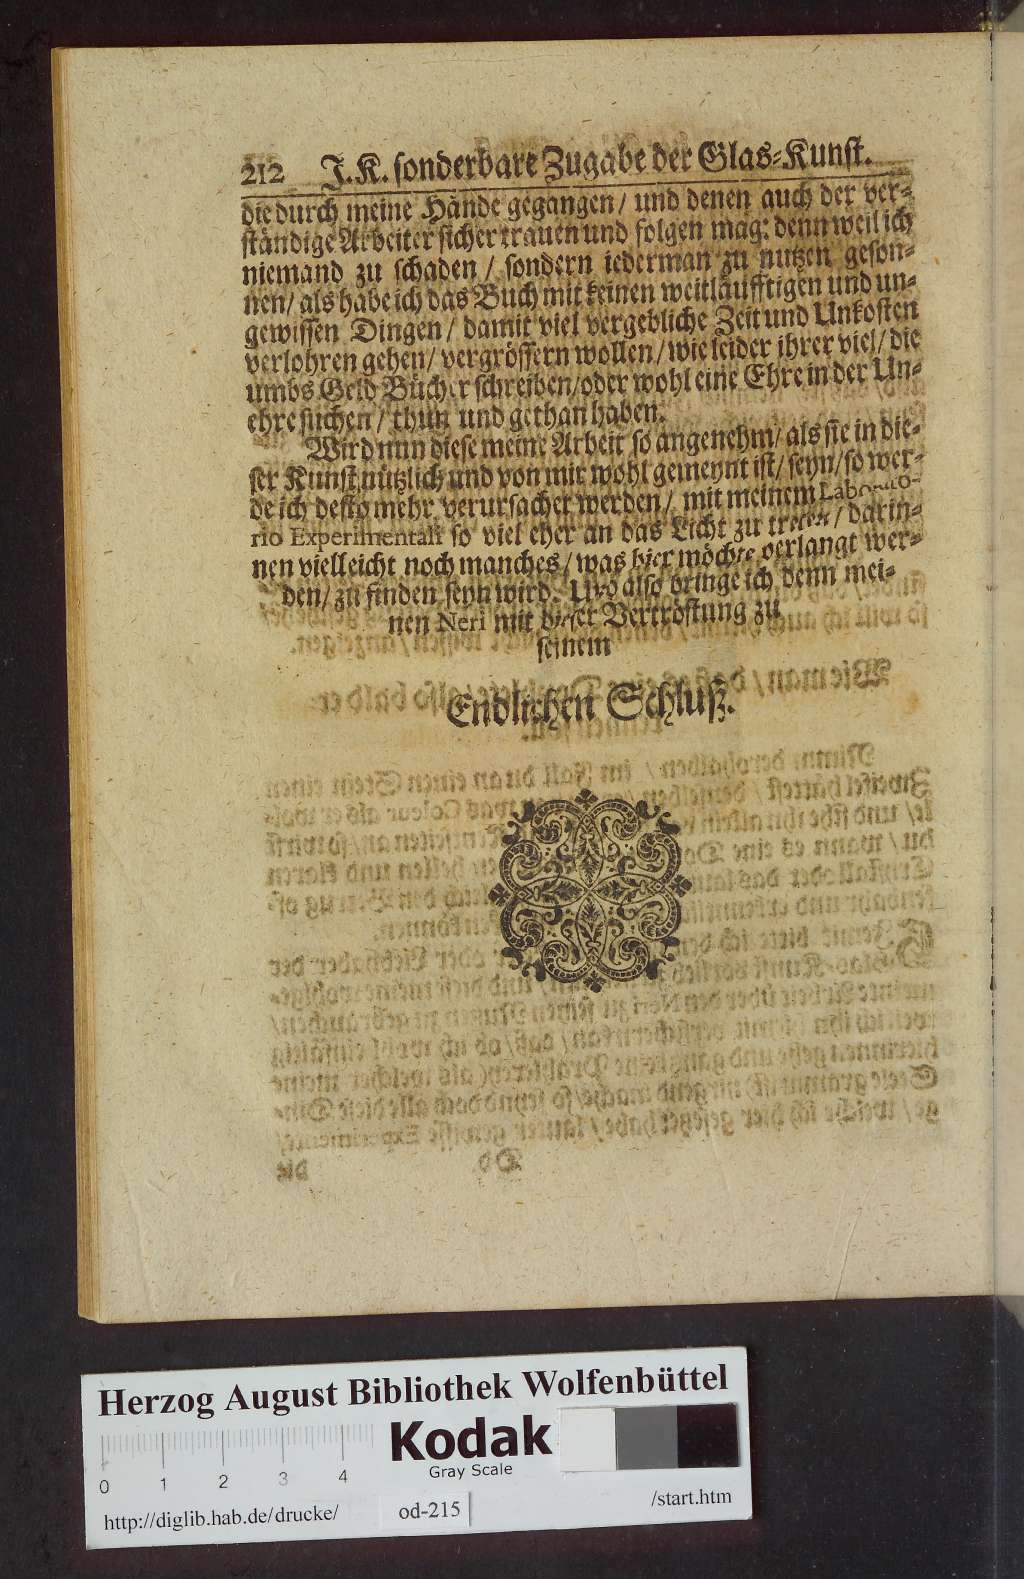 212 J. K. sonderbare Zugabe der Glas-Kunst.
die durch meine Hände gegangen / und denen auch der ver-
ständige Arbeiter sicher trauen und folgen mag: denn weil ich
niemand zu schaden / sondern iederman zu nutzen geson-
nen / als habe ich das Buch mit keinen weitläufftigen und un-
gewissen Dingen / damit viel vergebliche Zeit und Unkosten
verlohren gehen / vergrössern wollen / wie leider ihrer viel / die
umbs Geld Bücher schreiben / oder wohl eine Ehre in der Un-
ehre suchen / thun und gethan haben.
Wird nun diese meine Arbeit so angenehm / als sie in die-
ser Kunst nützlich und von mir wohl gemeynt ist / seyn / so wer-
de ich desto mehr verursachet werden / mit meinem Laborato-
rio Experimentali so viel eher an das Licht zu treten / darin-
nen vielleicht noch manches / was hier möchte verlangt wer-
den / zu finden seyn wird. Und also bringe ich denn mei-
nen Neri mit dieser Vertröstung zu
seinem
Endlichen Schluß.
Herzog August Bibliothek Wolfenbüttel
Kodak
Gray Scale
0 1 2 3 4
http://diglib.hab.de/drucke/ od-215 /start.htm